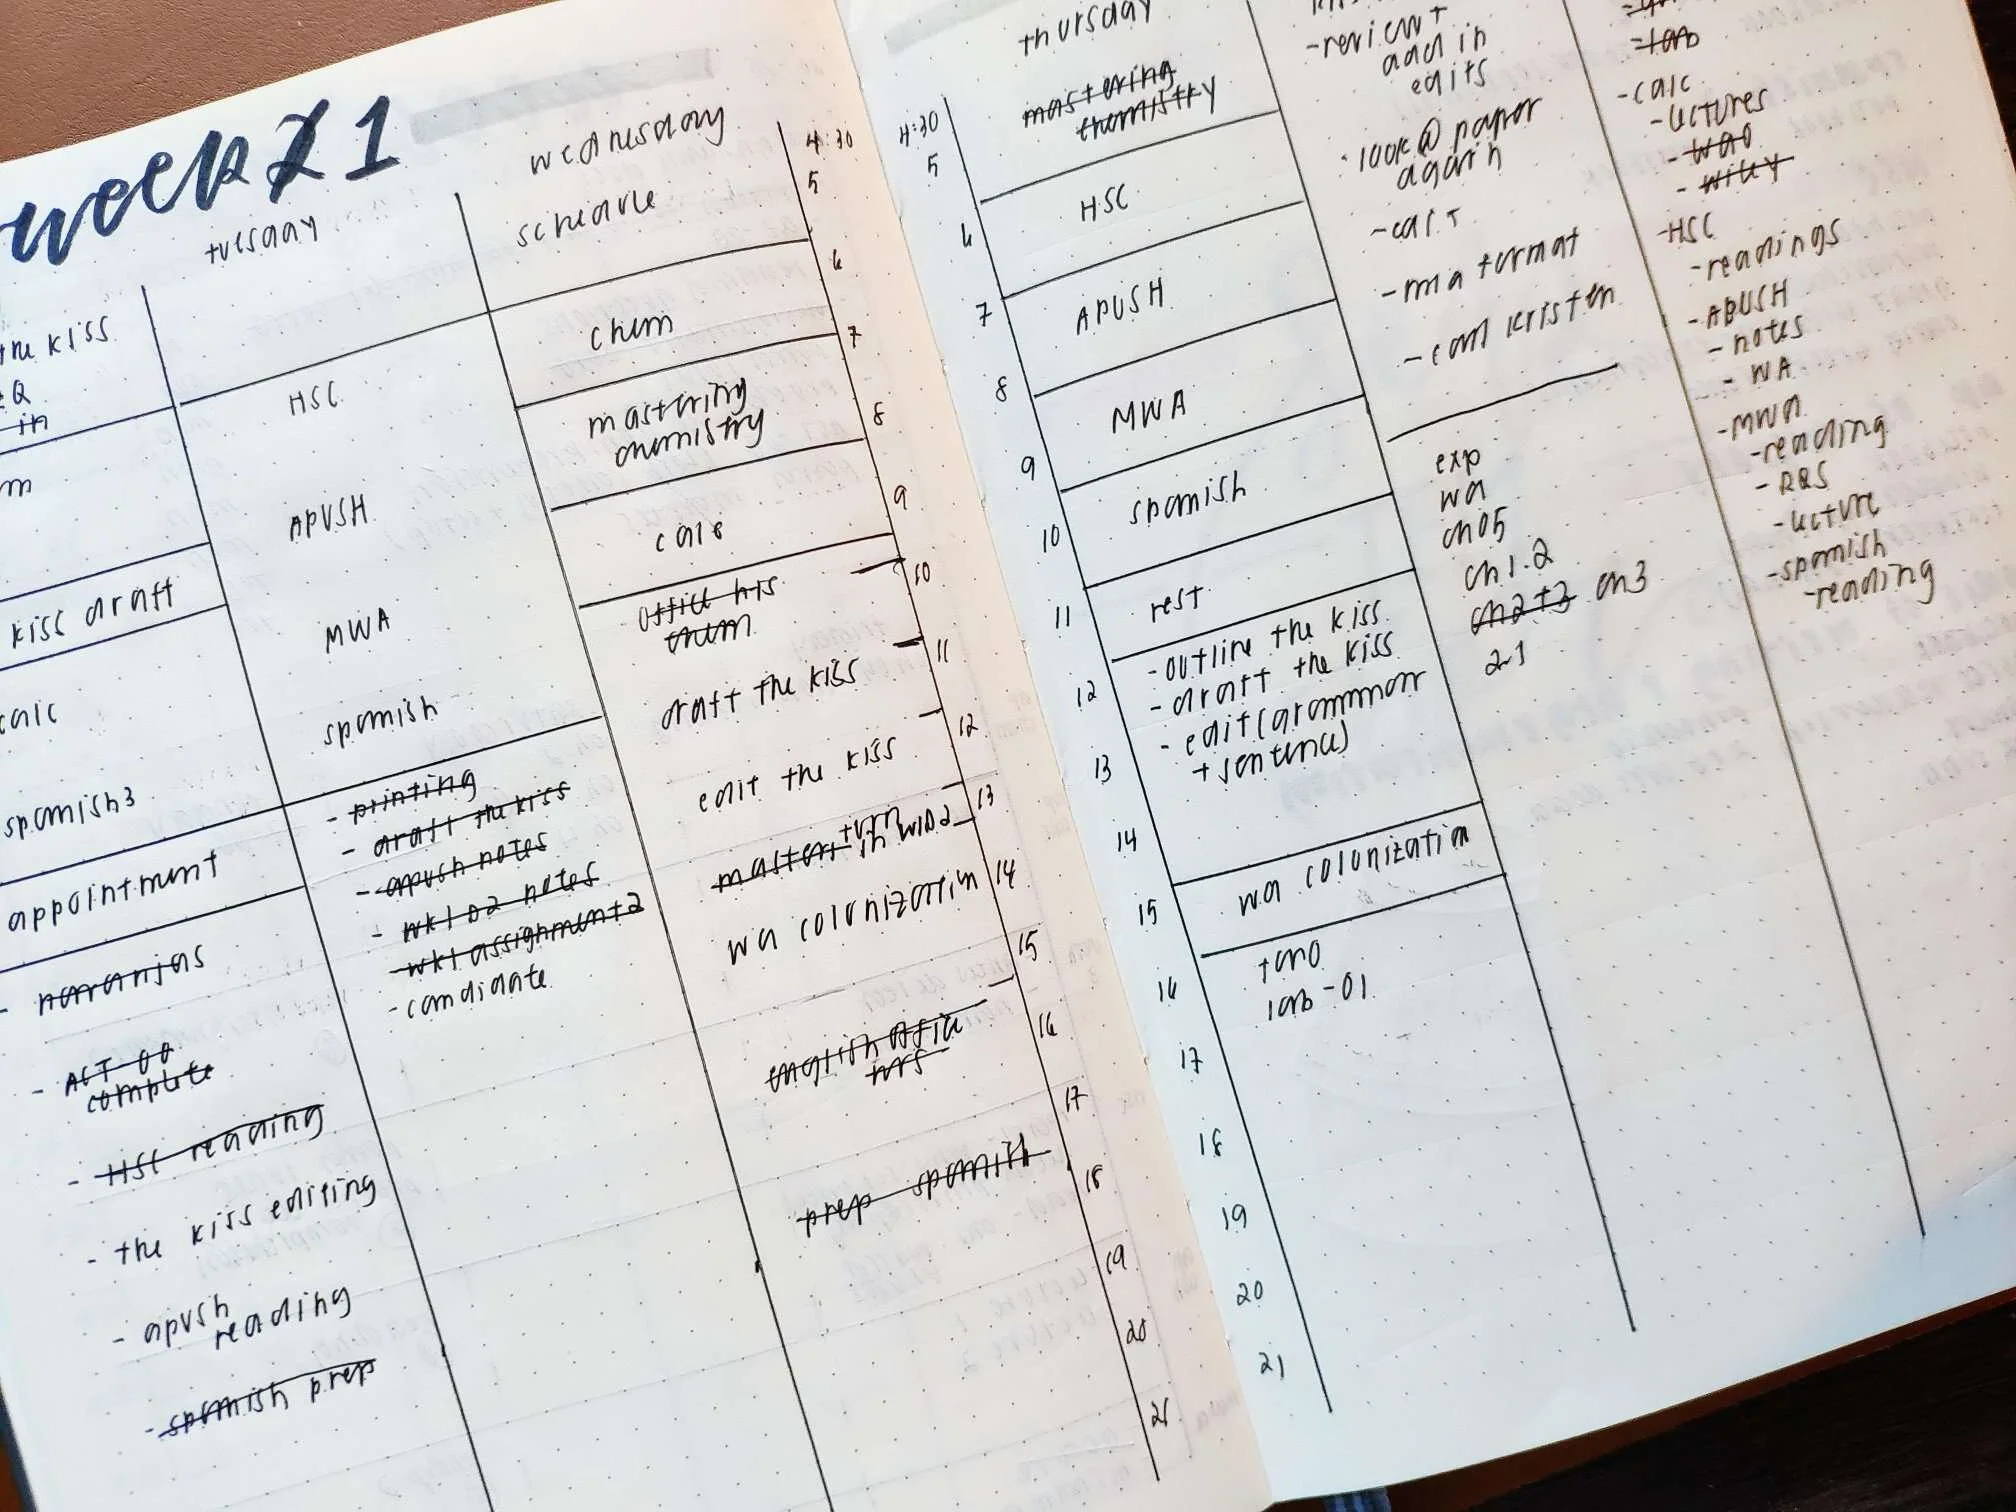 week 1
the kiss
Q
in
m
kiss draft
calc
spanish3
appointment
- naranjas
- ACT 00
complete
- HSC reading
- the kiss editing
- apush
reading
- spanish prep
tuesday
HSC
APUSH
MWA
spanish
- printing
- draft the kiss
- apush notes
- wk1 D2 notes
- wk1 assignment 2
- candidate
wednesday
schedule
chem
mastering
chemistry
calc
office hrs
chem
draft the kiss
edit the kiss
turn
in WLD2
wa colonization
english office
hrs
prep spanish
4:30
5
6
7
8
9
10
11
12
13
14
15
16
17
18
19
20
21
thursday
4:30
5
6
7
8
9
10
11
12
13
14
15
16
17
18
19
20
21
mastering
chemistry
HSC
APUSH
MWA
spanish
rest
- outline the kiss
- draft the kiss
- edit (grammar
+ sentence)
wa colonization
lab-01
- review +
add in
edits
- look @ paper
again
- edit
- mla format
- call kristen
exp
wa
ch05
ch1.2
ch2+3 ch3
2.1
- lab
- calc
- lectures
- wao
- wiley
- HSC
- readings
- APUSH
- notes
- WA
- MWA
- reading
- RQS
- lecture
- spanish
- reading